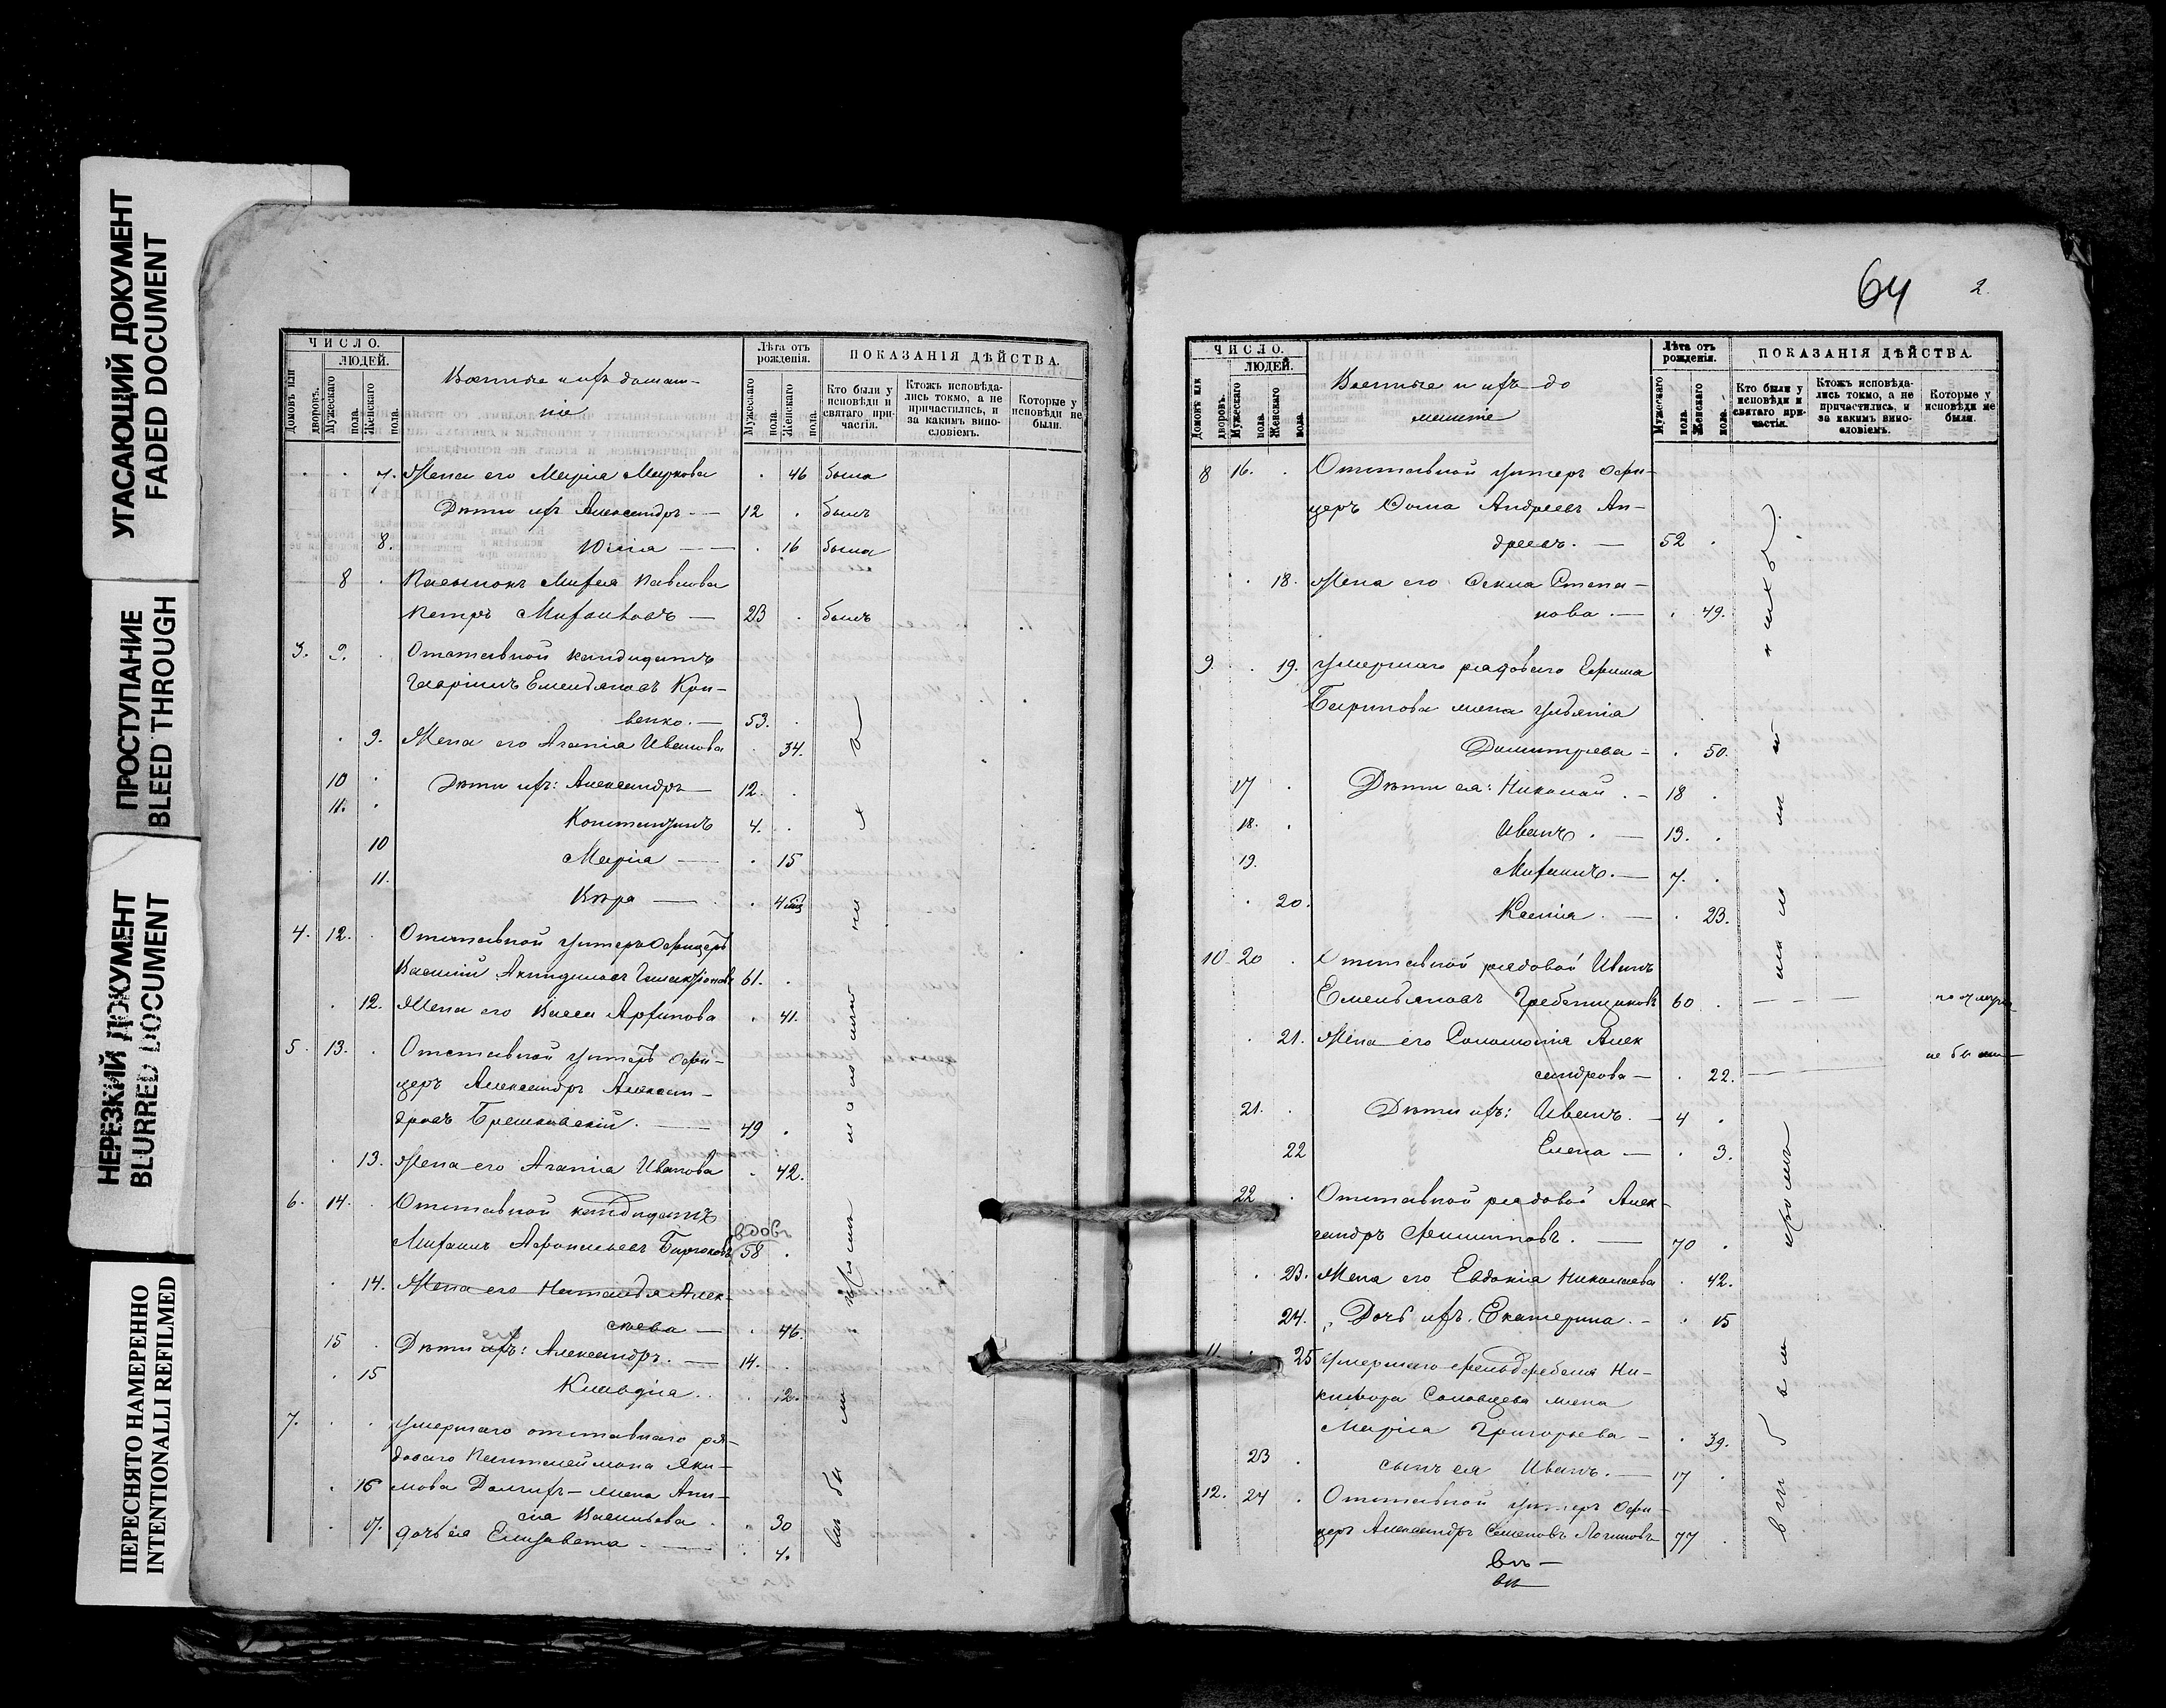 УГАСАЮЩИЙ ДОКУМЕНТ
FADED DOCUMENT
ПРОСТУПАНИЕ
BLEED THROUGH
НЕРЕЗКИЙ ДОКУМЕНТ
BLURRED DOCUMENT
ПЕРЕСНЯТО НАМЕРЕННО
INTENTIONALLI REFILMED
ЧИСЛО.
ЛЮДЕЙ.
Домовъ или дворовъ.
Мужескаго пола.
Женскаго пола.
Военные и ихъ домаш-
ніе
Лѣта отъ рожденія.
Мужескаго пола.
Женскаго пола.
ПОКАЗАНІЯ ДѢЙСТВА.
Кто были у исповѣди и святаго при-частія.
Ктожъ исповѣда-лись токмо, а не причастились, и за какимъ вино-словіемъ.
Которые у исповѣди не были.
7. Жена его Марія Маркова 46 была
Дѣти ихъ Александръ 12 былъ
8. Юлія 16 была
8 Пасынокъ Павлова
Петръ 23 былъ
3. 9. Отставной кандидатъ
Емельяновъ Кри-
венко. 53.
9. Жена его Агапія Иванова 34.
10 Дѣти ихъ: Александръ 12.
11. Константинъ 4.
10 Марія 15
11. Вѣра 4 мѣс
4. 12. Отставной унтеръ Офицеръ
Василій Акиндиновъ 61.
12. Жена его Васса Архипова 41.
5. 13. Отставной унтеръ Офи-
церъ Александръ Алексан-
дровъ 49
13. Жена его Агапія Иванова 42.
6. 14. Отставной кандидатъ
вдовъ
Михаилъ Афанасьевъ Бирюковъ 58
14. Жена его Наталія Алек-
сѣева 46.
15 Дѣти ихъ: его Александръ. 14.
15 Клавдія 12.
7. Умершаго отставнаго ря-
доваго Пантелеймона Яки-
16 мова жена Ани-
сія Васильева 30
17. дочь ея Елизавета 4.
64 2.
ЧИСЛО.
ЛЮДЕЙ.
Домовъ или дворовъ.
Мужескаго пола.
Женскаго пола.
Военные и ихъ до
машніе
Лѣта отъ рожденія.
Мужескаго пола.
Женскаго пола.
ПОКАЗАНІЯ ДѢЙСТВА.
Кто были у исповѣди и святаго при-частія.
Ктожъ исповѣда-лись токмо, а не причастились, и за какимъ вино-словіемъ.
Которые у исповѣди не были.
8 16. Отставной унтеръ Офи-
церъ Ѳома Андреевъ Ан-
дреевъ. 52
18. Жена его Ѳекла Степа-
нова 49.
9. 19. Умершаго рядоваго Ефима
Баринова жена Ульянія
Димитріева 50.
17 Дѣти ея: Николай 18
18. Иванъ 13.
19. Михаилъ. 7.
20. Ксенія 23.
10 20 Отставной рядовой Иванъ
Емельяновъ Гребенщиковъ 60
21. Жена его Соломонія Алек
сандрова 22. не были
21. Дѣти ихъ: Иванъ. 4
22 Елена 3.
22 Отставной рядовой Алек-
сандръ Филипповъ. 70
23. Жена его Евдокія Николаева 42.
24. Дочь ихъ. Екатерина. 15
11 25 Умершаго фельдфебеля Ни-
кифора Соловцева жена
Марія Григорьева 39.
23 сынъ ея Иванъ. 17
12. 24 Отставной унтеръ Офи-
церъ Александръ Семеновъ Логиновъ 77